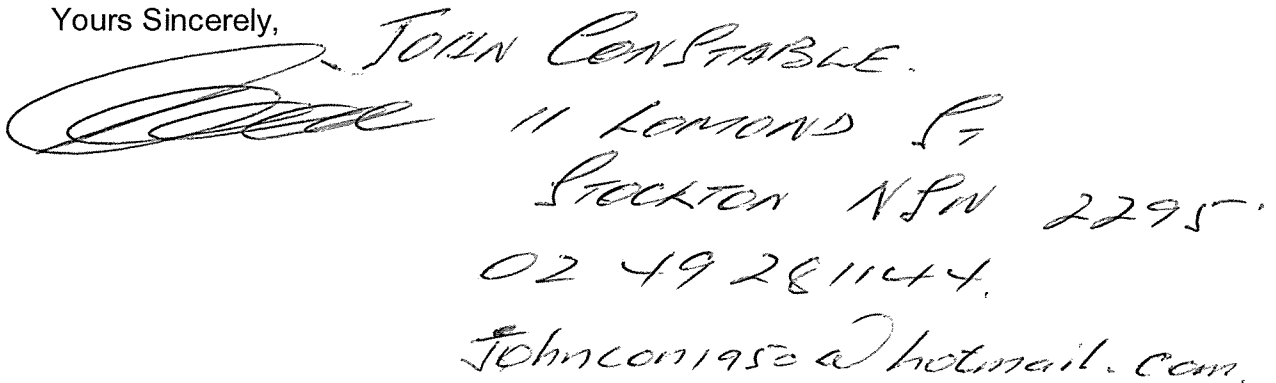 Yours Sincerely,
JOHN CONSTABLE.
11 LOMOND ST
STOCKTON NSW 2295
02 49 281144.
johncon1950@hotmail.com.